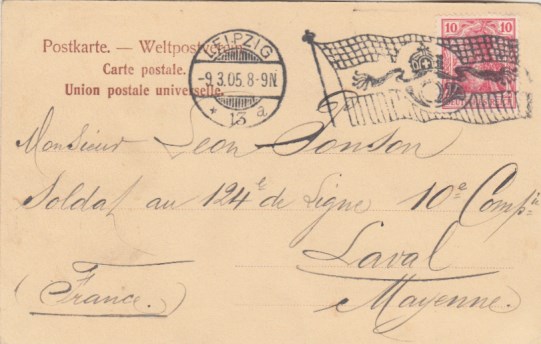 Postkarte. — Weltpostverein
Carte postale.
Union postale universelle.
LEIPZIG
-9.3.05.8-9N.
* 13 a
10 10
Monsieur Leon Sonson
Soldat au 124e de Ligne 10e Compie
Laval
(France.) Mayenne.